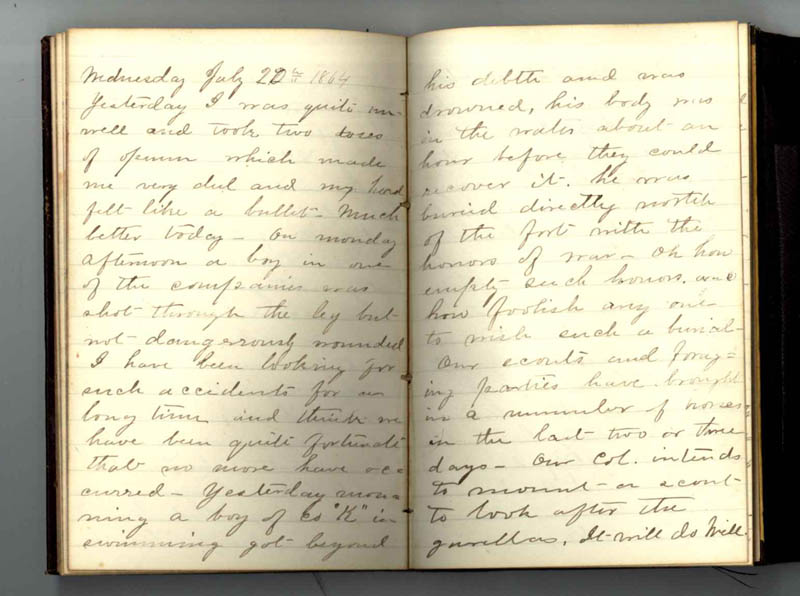 Wednesday July 20th 1864
Yesterday I was quite un-
well and took two doses
of opium which made
me very dul and my head
felt like a bullet - Much
better today - On monday
afternoon a boy in one
of the companies was
shot through the leg but
not dangerously wounded
I have been looking for
such accidents for a
long time and think we
have been quite fortunate
that no more have oc-
curred - Yesterday mor-
ning a boy of Co "K" in
swimming got beyond
his debth and was
drowned, his body was
in the water about an
hour before they could
recover it. he was
buried directly north
of the fort with the
honors of war - Oh how
empty such honors. and
how foolish any one
to wish such a burial -
Our scouts and forag-
ing parties have brought
in a number of horses
in the last two or three
days - Our Col. intends
to mount a scout
to look after the
gurellas. It will do Well.